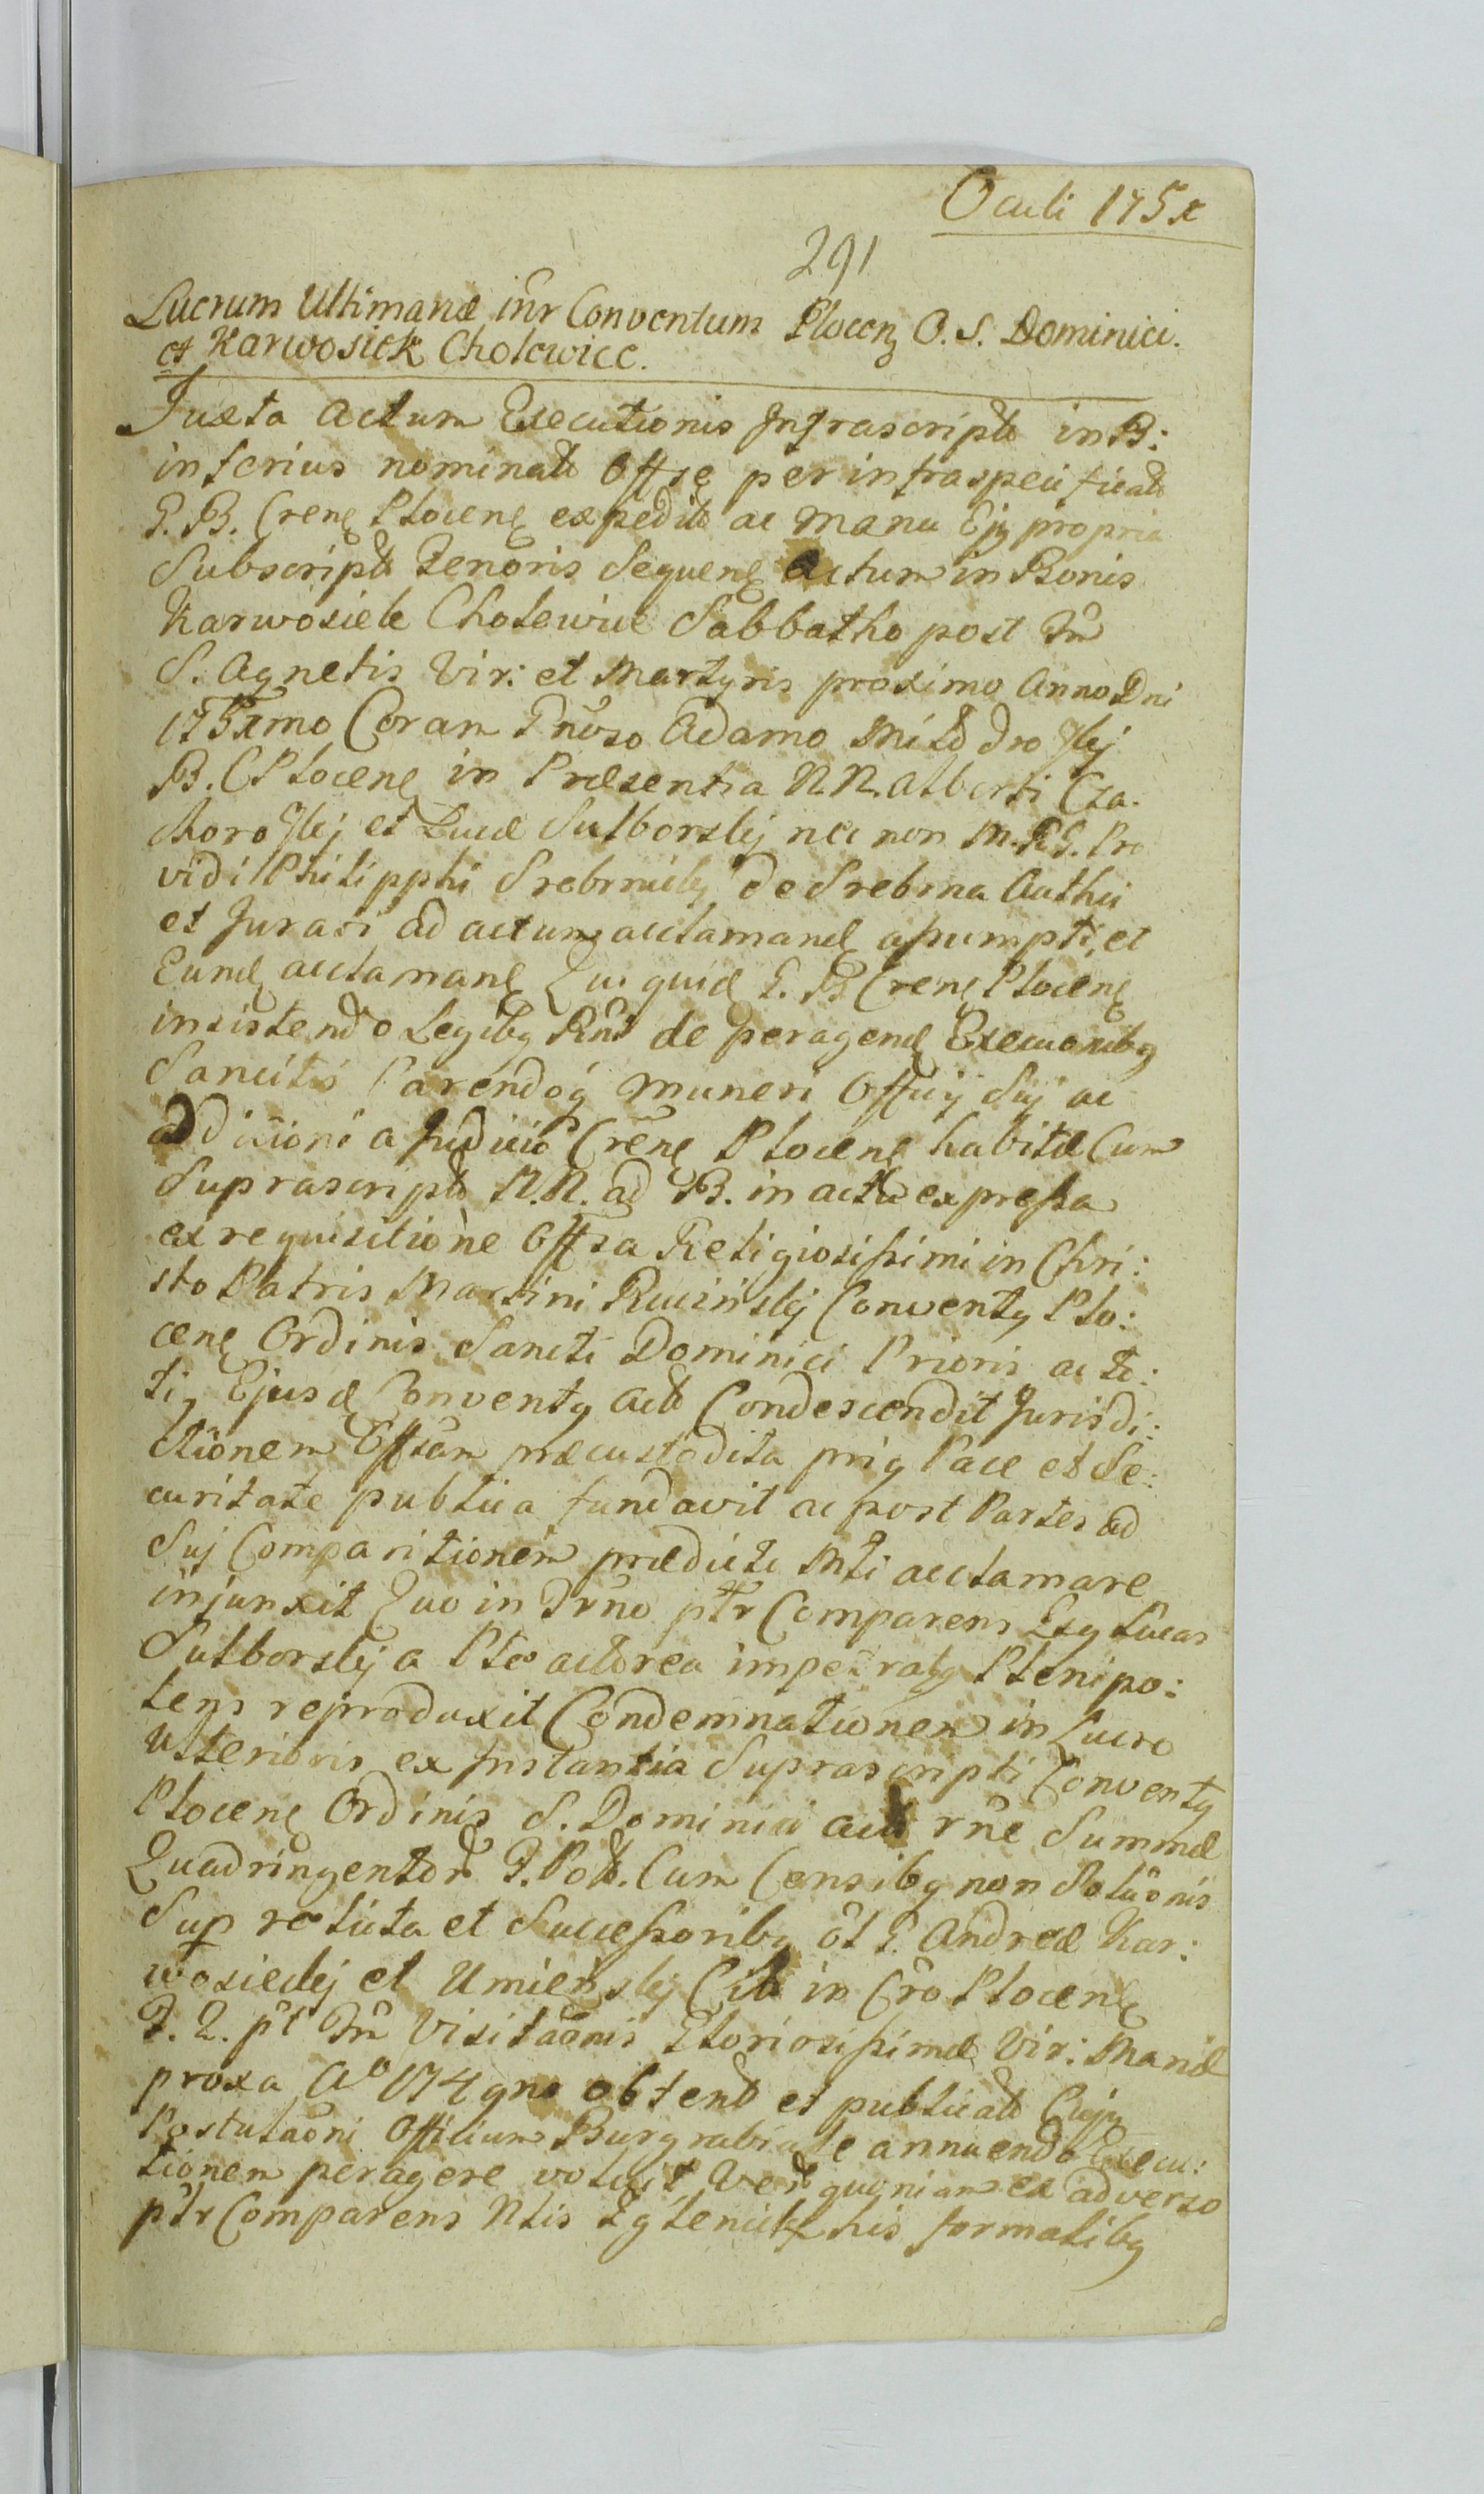 Oculi 175x
291
Lucrum Ultimariæ inr Conventum Plocen O. S. Dominici.
et Karwosiek Cholewicc.
Juxta Actum Executionis Infrascriptt in B:
inferius nominatt Offse per infraspecificatt
G. B. Crene Plocene expeditt ac manu Ejg propria
Subscriptt Tenoris Sequene Actum in Bonis
Karwosiek Cholewice Sabbatho post Fm
S. Agnetis Vir: et Martyris proximo Anno Dni
175xmo Coram Gnroso Adamo
B. C Plocene in Præsentia N.N. Alberti Cza.
et Lucæ Sulborskj nec non M. R G. Pro
vidi Philipphi de Srebrna Authci
et Jurati ad actum acclamand assumpti, et
Eund acclamane Qui quid G. B Crene Plocene
insistendo Legibg Rni de peragend
Sancitis Parendog muneri Officij Sui ac
addicioni a Judicio Crene Plocene habitæ Cum
Suprascriptt N.N. ad B. in actu expressa
ex requisitione Offsa Religiosissimi in Chri:
sto Patris Martini Rucinskj Conventg Plo:
cene Ordinis Sancti Dominici Prioris ac to:
tig Ejusd Conventg Actt Condescendit Jurisdi:
ctionem Offsam præcustodita prig Pace et Se:
curitate publica fundavit ac post Partes ad
Sui Comparitionem prædicti Mti acclamare
injunxit Quo in Trno ptr Comparens Lucas
Sulborskj a Pte actorea impetratg Plenipo:
tens reproduxit Condemnationem in Lucro
Ulterioris ex Instantia Suprascripti Conventg
Plocene Ordinis S. Dominici actt rne Summæ
Quadringentor F. Poll. Cum Censibg non Soluonis
Sup relicta et Successoribg ol G. Andreæ Kar:
wosieckj et Umienskj Citt in Cro Plocene
F. Q. pt Fm Visitaonis Gloriosissimæ Vir: Mariæ
proxa Ao 1749no obtentt et publicatt Cujg
Postulaoni Officium Burgrabiale annuendo Execu:
tionem peragere voluit, Verr quoniam ex adverso
ptr Comparens Ntis his formalibg